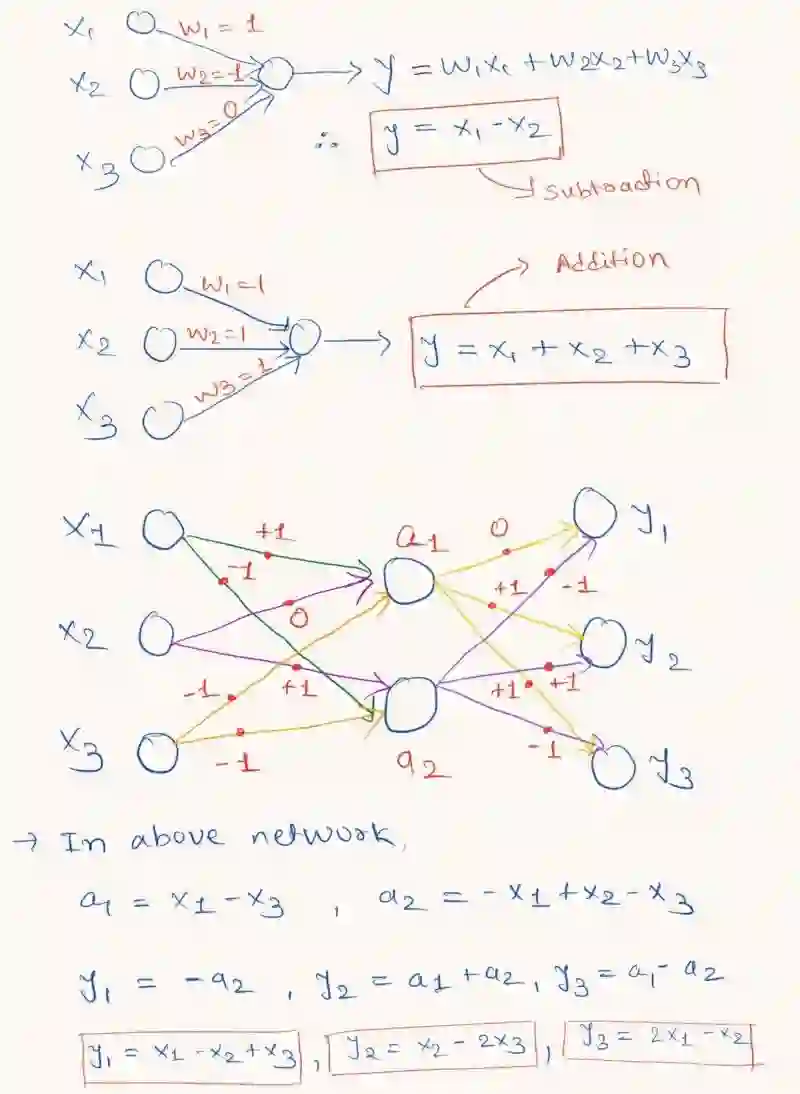 x₁ w₁ = 1
x₂ w₂=-1 → y = w₁x₁ + w₂x₂ + w₃x₃
x₃ w₃=0 ∴ y = x₁ - x₂
subtraction
Addition
x₁ w₁=1
x₂ w₂=1 → y = x₁ + x₂ + x₃
x₃ w₃=1
x1 +1 a1 0 y₁
-1 +1 -1
x2 0 y2
-1 +1 +1 +1
x3 -1 a2 -1 y3
→ In above network,
a₁ = x1 - x3 , a2 = -x1 + x2 - x3
y₁ = -a2 , y2 = a1 + a2 , y3 = a₁ - a2
y₁ = x1 - x2 + x3 , y2 = x2 - 2x3 , y3 = 2x1 - x2